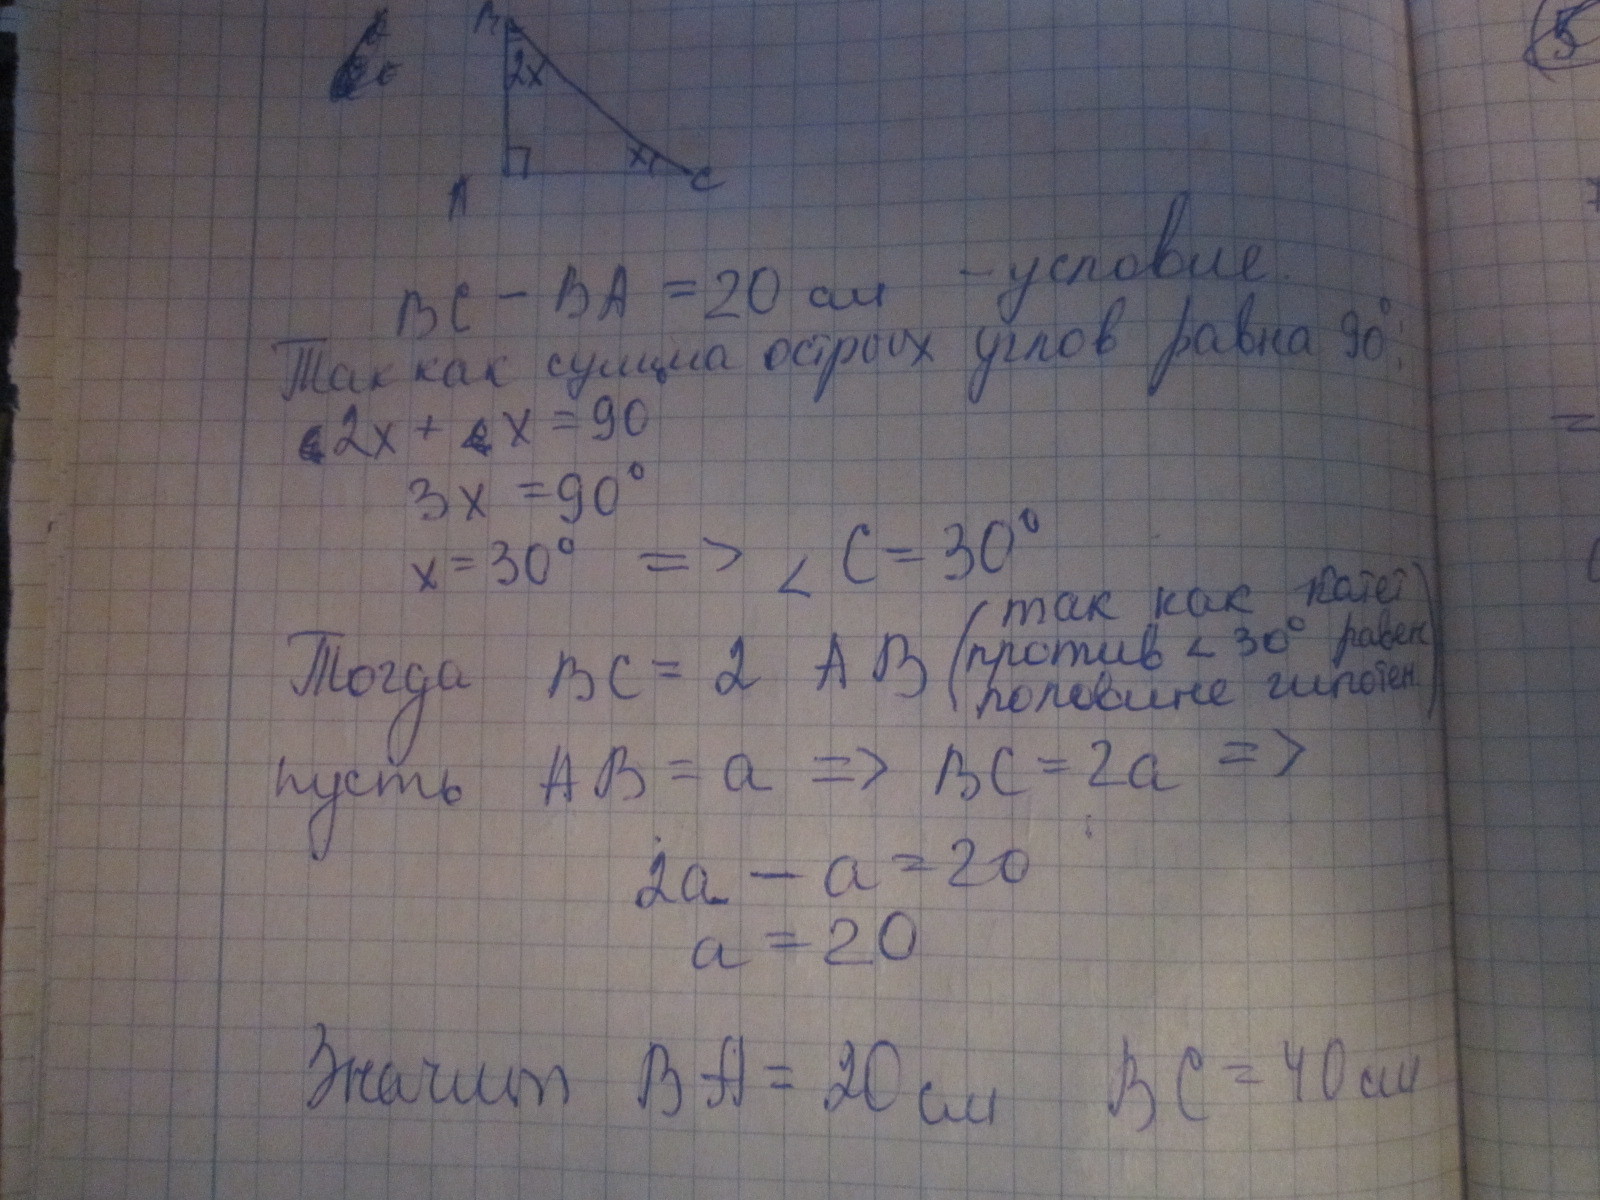 B
2x
x
A
C
5
BC - BA = 20 см - условие.
Так как сумма острых углов равна 90°:
2x + x = 90
3x = 90°
x = 30° => ∠C = 30°
Тогда BC = 2 AB (так как катет
против ∠ 30° равен
половине гипотен.)
пусть AB = a => BC = 2a =>
2a - a = 20
a = 20
Значит BA = 20 см BC = 40 см